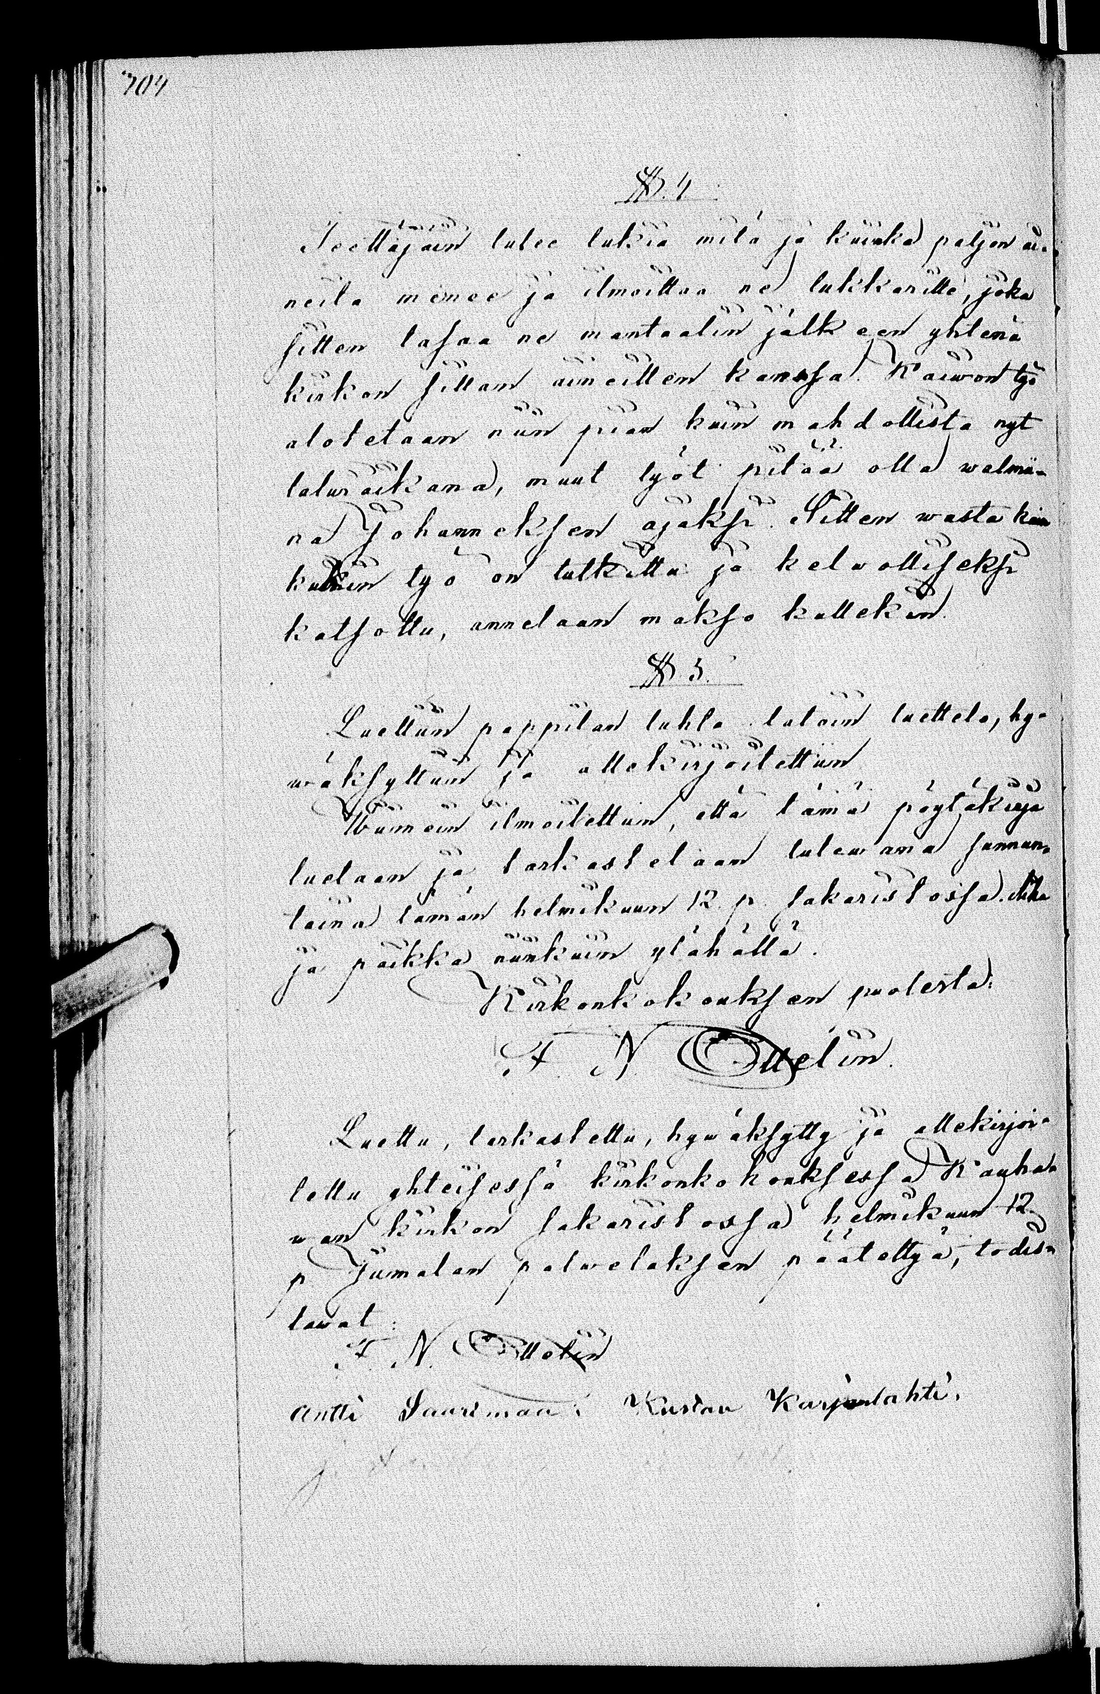 704
§. 4
Teettäjäin tulee lukia mitä ja kuinka paljon ai-
neita menee ja ilmoittaa ne lukkarille, joka
sitten tasaa ne mantaalin jälkeen yhtenä
kirkon sillan aineitten kanssa. Kaivon työ
aloitetaan niin pian kuin mahdollista nyt
talwiaikana, muut työt pitää olla walmii-
na Johanneksen ajaksi. Sitten wasta kuin
kunkin työ on tutkittu ja kelwolliseksi
katsottu, annetaan makso kullekin.
§ 5.
Luettiin pappilan luhta latoin luettelo, hy-
wäksyttiin ja allekirjoitettiin
Wiimein ilmoitettiin, että tämä pöytäkirja
luetaan ja tarkastetaan tulewana sunnun-
taina tämän helmikuun 12 p. sakaristossa. Aika
ja paikka niinkuin ylähällä.
Kirkonkokouksen puolesta:
F. N. Ottelin.
Luettu, tarkastettu, hywäksytty ja allekirjoi-
tettu yhteisessä kirkonkokouksessa Kauha-
wan kirkon sakaristossa helmikuun 12
p Jumalan palweluksen päätettyä, todis-
tawat:
F. N. Ottelin
Antti Saarimaa. Kustaa Karjanlahti.